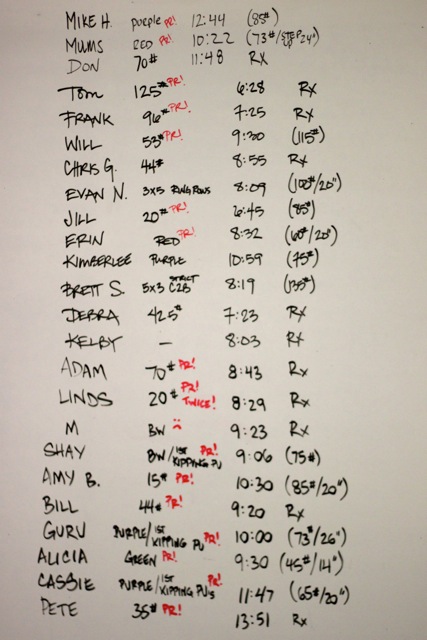 MIKE H. PURPLE PR! 12:44 (85#)
MUMS RED PR! 10:22 (73#/STEP UP 24")
DON 70# 11:48 RX
TOM 125# PR! 6:28 RX
FRANK 96# PR! 7:25 RX
WILL 53# PR! 9:30 (115#)
CHRIS G. 44# 8:55 RX
EVAN N. 3x5 RING ROWS 8:09 (100#/20")
JILL 20# PR! 6:45 (85#)
ERIN RED PR! 8:32 (60#/20")
KIMBERLEE PURPLE 10:59 (75#)
BRETT S. 5x3 STRICT C2B 8:19 (135#)
DEBRA 42.5# 7:23 RX
KELBY — 8:03 RX
ADAM 70# PR! 8:43 RX
LINDS 20# PR! TWICE! 8:29 RX
M BW 9:23 RX
SHAY BW/1ST KIPPING PU PR! 9:06 (75#)
AMY B. 15# PR! 10:30 (85#/20")
BILL 44# PR! 9:20 RX
GURU PURPLE/1ST KIPPING PU PR! 10:00 (73#/26")
ALICIA GREEN PR! 9:30 (45#/14")
CASSIE PURPLE/1ST KIPPING PU'S PR! 11:47 (65#/20")
PETE 35# PR! 13:51 RX